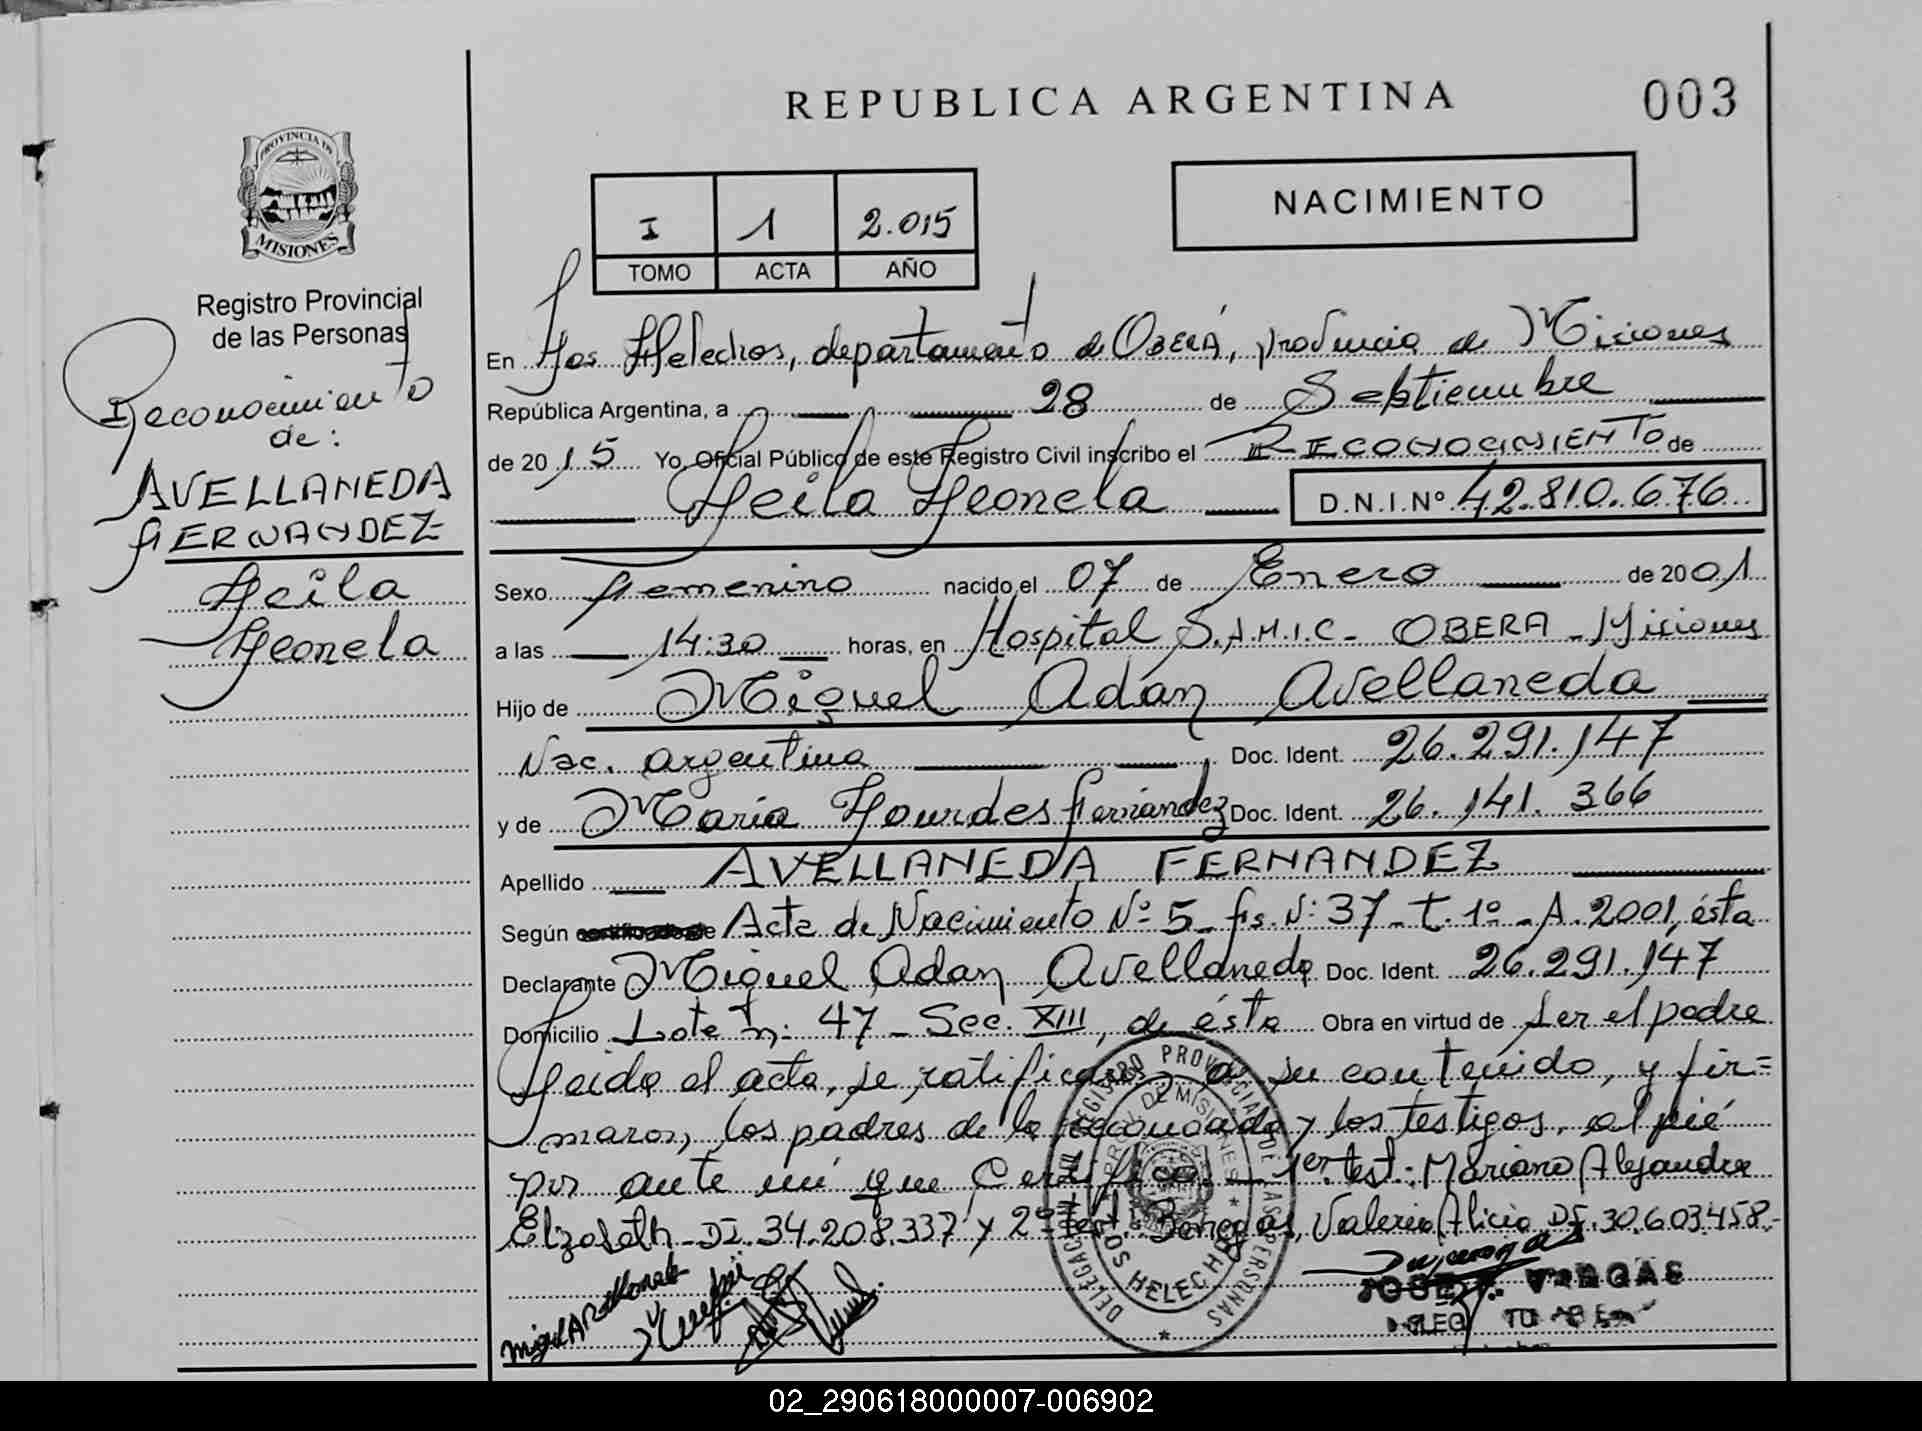 REPUBLICA ARGENTINA
003
PROVINCIA DE
MISIONES
Registro Provincial
de las Personas
Reconocimiento
de:
AVELLANEDA
FERNANDEZ
Leila
Leonela
I 1 2.015
TOMO ACTA AÑO
NACIMIENTO
En Los Helechos, departamento de OBERÁ, provincia de Misiones
República Argentina, a 28 de Septiembre
de 2015 Yo, Oficial Público de este Registro Civil inscribo el RECONOCIMIENTO de
Leila Leonela D.N.I.Nº 42.810.676
Sexo Femenino nacido el 07 de Enero de 2001
a las 14:30 horas, en Hospital S.A.M.I.C- OBERA - Misiones
Hijo de Miguel Adán Avellaneda
Nac. argentina Doc. Ident. 26.291.147
y de Maria Lourdes Fernández Doc. Ident. 26.141.366
Apellido AVELLANEDA FERNANDEZ
Según Acta de Nacimiento Nº 5 - fs. Nº 37 - t. 1º - A. 2001, ésta
Declarante Miguel Adan Avellaneda Doc. Ident. 26.291.147
Domicilio Lote n: 47 - Sec. XIII, de ésta Obra en virtud de ser el padre
Leída el acta, se ratifican a su contenido, y fir=
maron, los padres de la reconocida y los testigos, al pié
por ante mí que Certifico - 1er test: Mariano Alejandra
Elizabeth - DI. 34.208.337 y 2º test: Benegas, Valeria Alicia DI. 30.603.458-
DELEGACION REGISTRO PROVINCIAL DE LAS PERSONAS
PROV. DE MISIONES
LOS HELECHOS
JOSE VARGAS
02_290618000007-006902